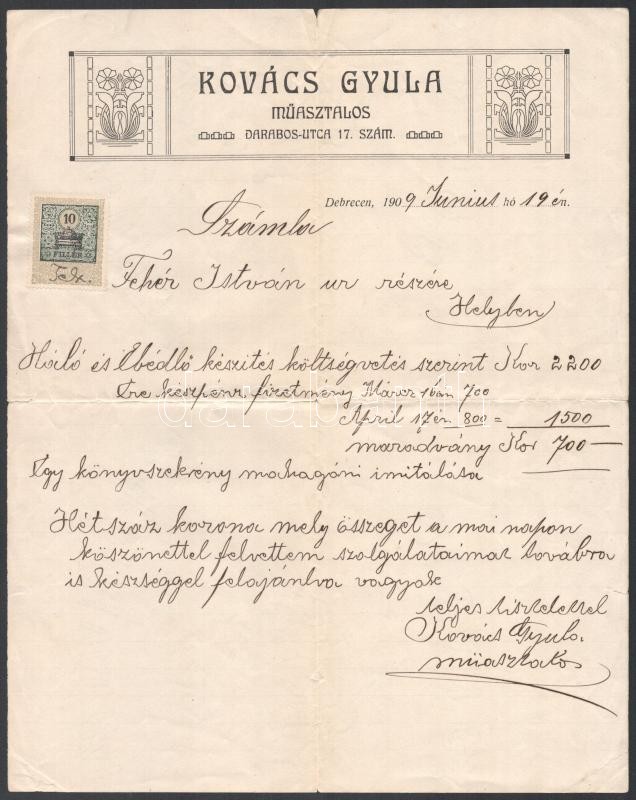 KOVÁCS GYULA
MŰASZTALOS
DARABOS-UTCA 17. SZÁM.
Debrecen, 1909 Junius hó 19 én.
Számla
10
FILLÉR
Fehér István ur részére
Helyben
Háló és Ebédlő készités költségvetés szerint Kor 2200
készpénz fizetmény Márcz 1ban 700
April 17en 800 = 1500
maradvány Kor 700—
Egy könyvszekrény mahagóni imitálása
Hétszáz korona mely összeget a mai napon
köszönettel felvettem szolgálataimat továbra
is készséggel felajánlva vagyok
teljes tisztelettel
Kovács Gyula
műasztalos
darabanth.com